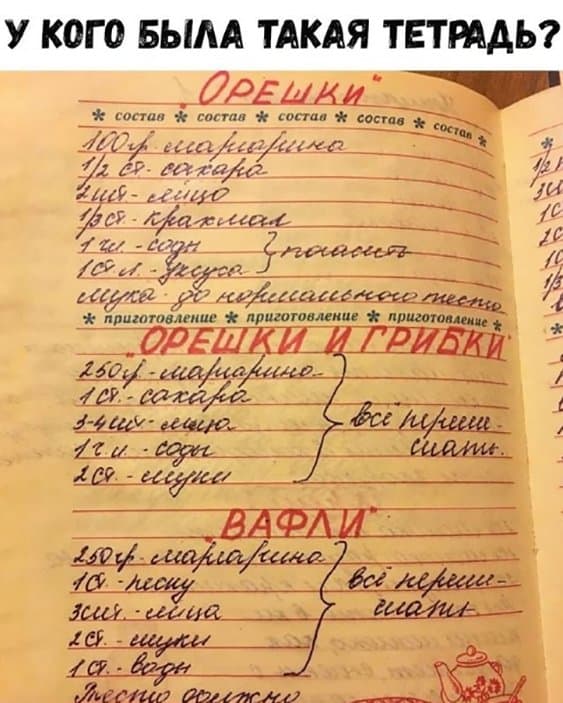 У КОГО БЫЛА ТАКАЯ ТЕТРАДЬ?
"ОРЕШКИ"
* состав * состав * состав * состав * состав *
100гр. маргарина
1/2 ст. сахара
2 шт - яйцо
1/3 ст - крахмал
1 ч.л. - соды } погасить
1 ст л. - уксуса
мука - до нормального теста
* приготовление * приготовление * приготовление *
"ОРЕШКИ И ГРИБКИ"
250гр - маргарина
1 ст. - сахара
3-4 шт - яйца } всё переме-
1 ч. л. - соды шать.
2 ст. - муки
"ВАФЛИ"
250гр - маргарина
1 ст. - песку } всё переме-
3 шт. - яйца шать
2 ст. - муки
1 ст. - воды
Тесто должно